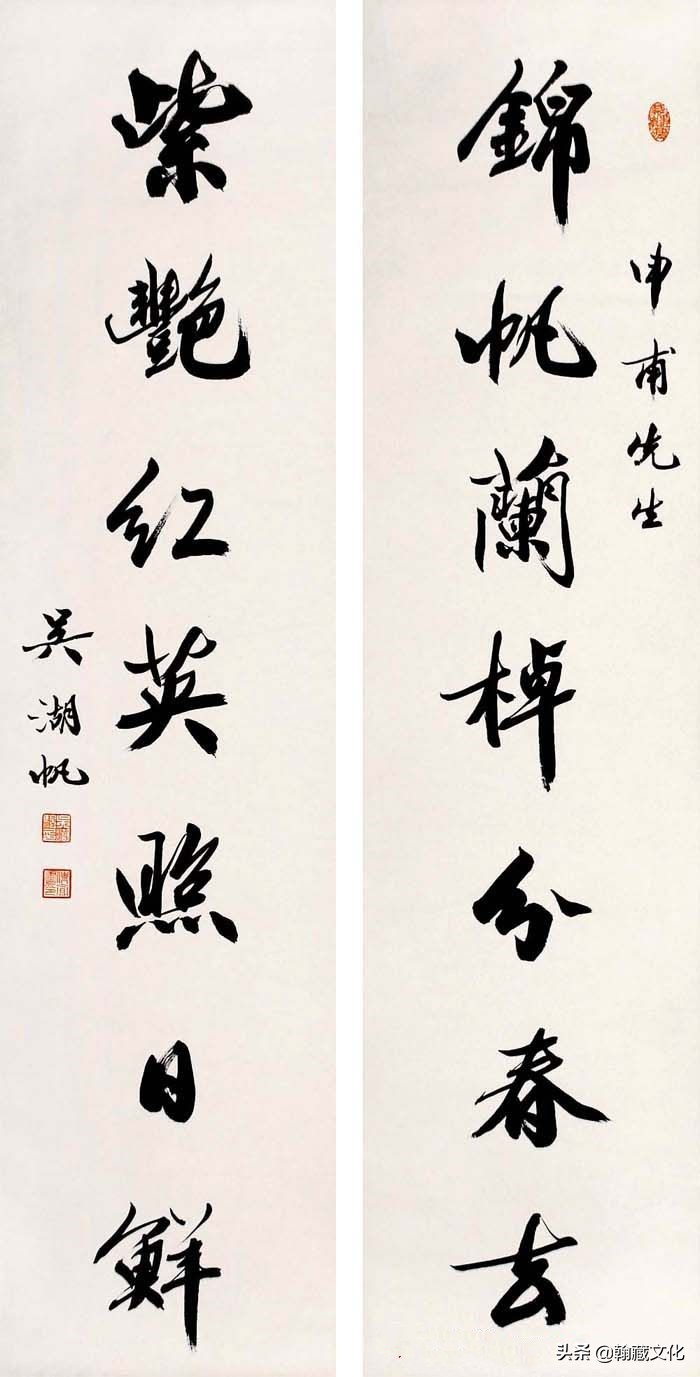 申甫先生
錦帆蘭棹分春去
紫艷紅英照日鮮
吳湖帆
头条 @翰藏文化